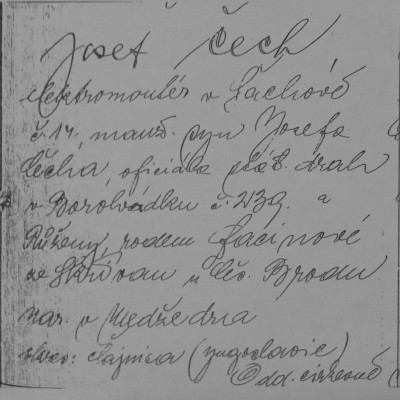 Josef Čech
elektromontér v Lachově
č. 14. manž. syn Josefa
Čecha, oficiála stát. drah
v Borohrádku č. 239. a
Růženy, rodem Lacinové
ze Skřivan u Čes. Brodu.
nar. v Medžedna
okres: Čajnica (Jugoslavie)
Odd. církevně